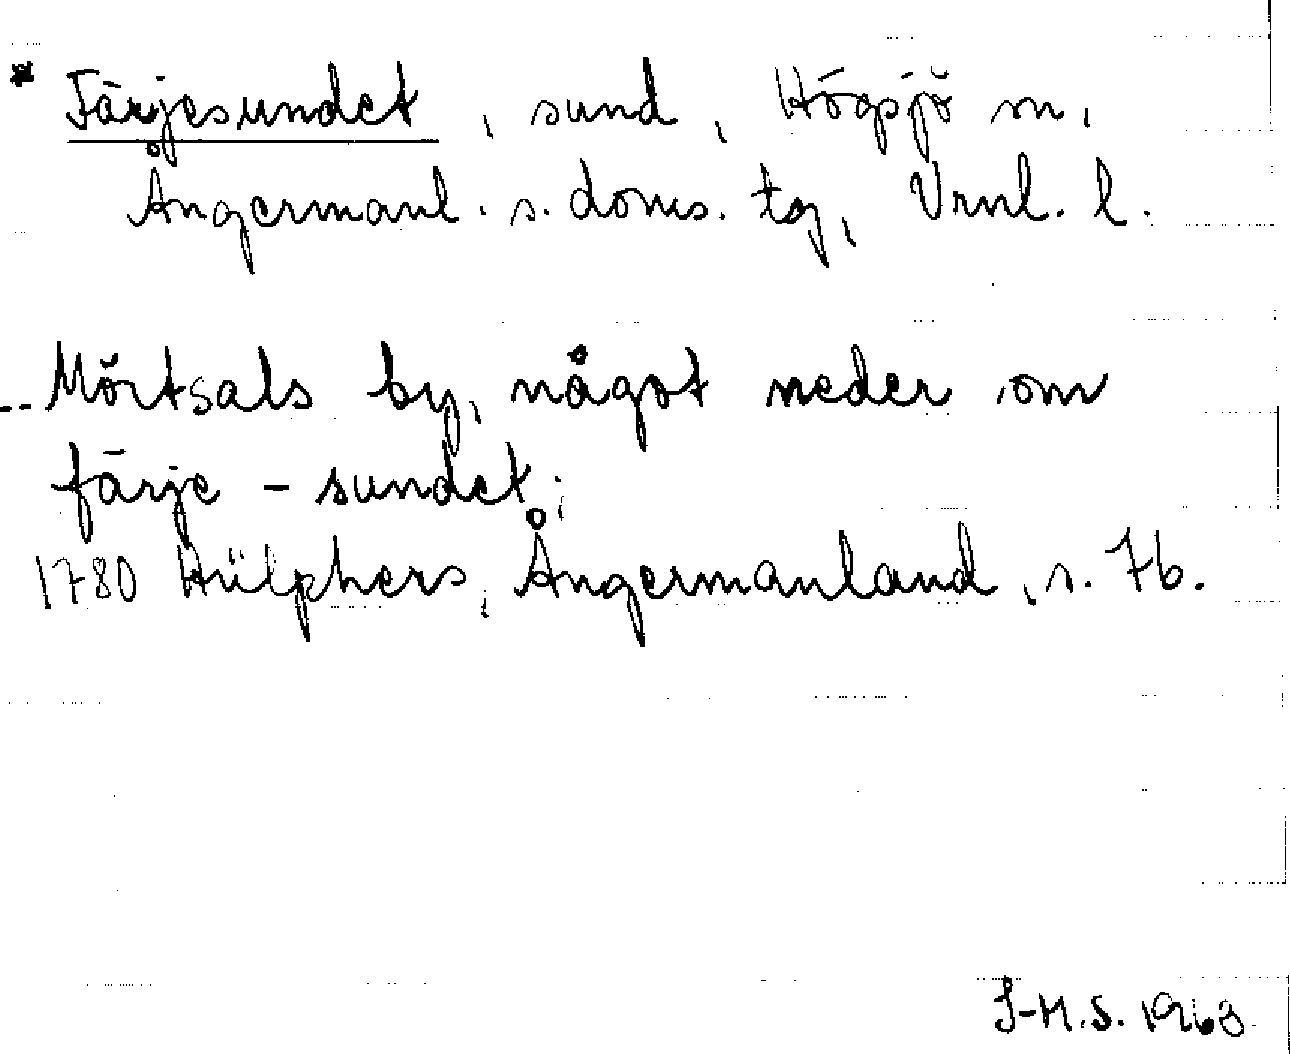 * Färjesundet, sund, Högsjö sn,
Ångermanl. s. doms. tg, Vrnl. l.
-- Mörtsals by, något neder om
färje-sundet;
1780 Hülphers, Ångermanland, s. 76.
J-H.S. 1963